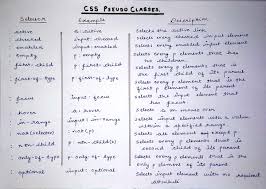 CSS PSEUDO CLASSES.
Selector Example Description
: active a : active Selects the active link
: checked input : checked Selects every checked input element
: enabled input : enabled Selects every enabled input element
: empty p : empty Selects every p element that has no children.
: first-child p : first-child Selects every p element that is the first child of its parent
: first-of-type p : first-of-type Selects every p element that is the first p element of its parent
: focus input : focus Selects the input element that has focus.
: hover a : hover Selects on mouse over
: in-range input : in-range Selects input element with a value within a specified range.
: not(selector) : not(p) Selects all element except p.
: nth-child(n) p : nth-child(n) Selects every p element that is the child of its parent
: only-of-type p : only-of-type Selects every p element that is the only p element of its parent
: optional input : optional Selects input element with no required attribute